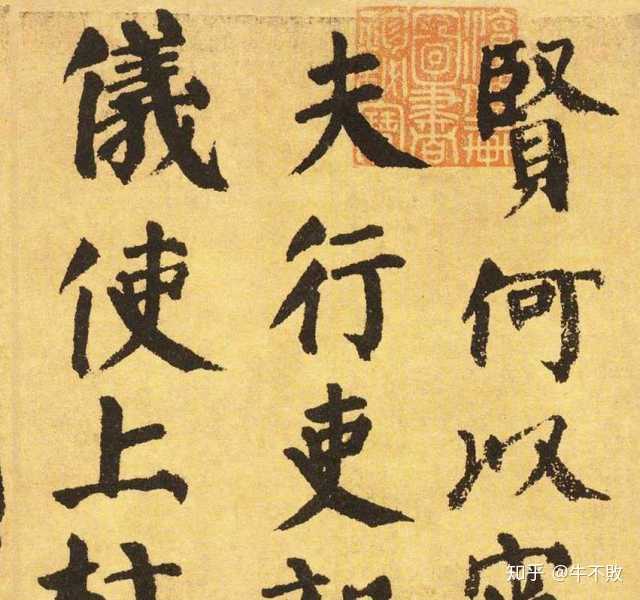 賢何以
夫行吏
儀使上
知乎 @牛不敗